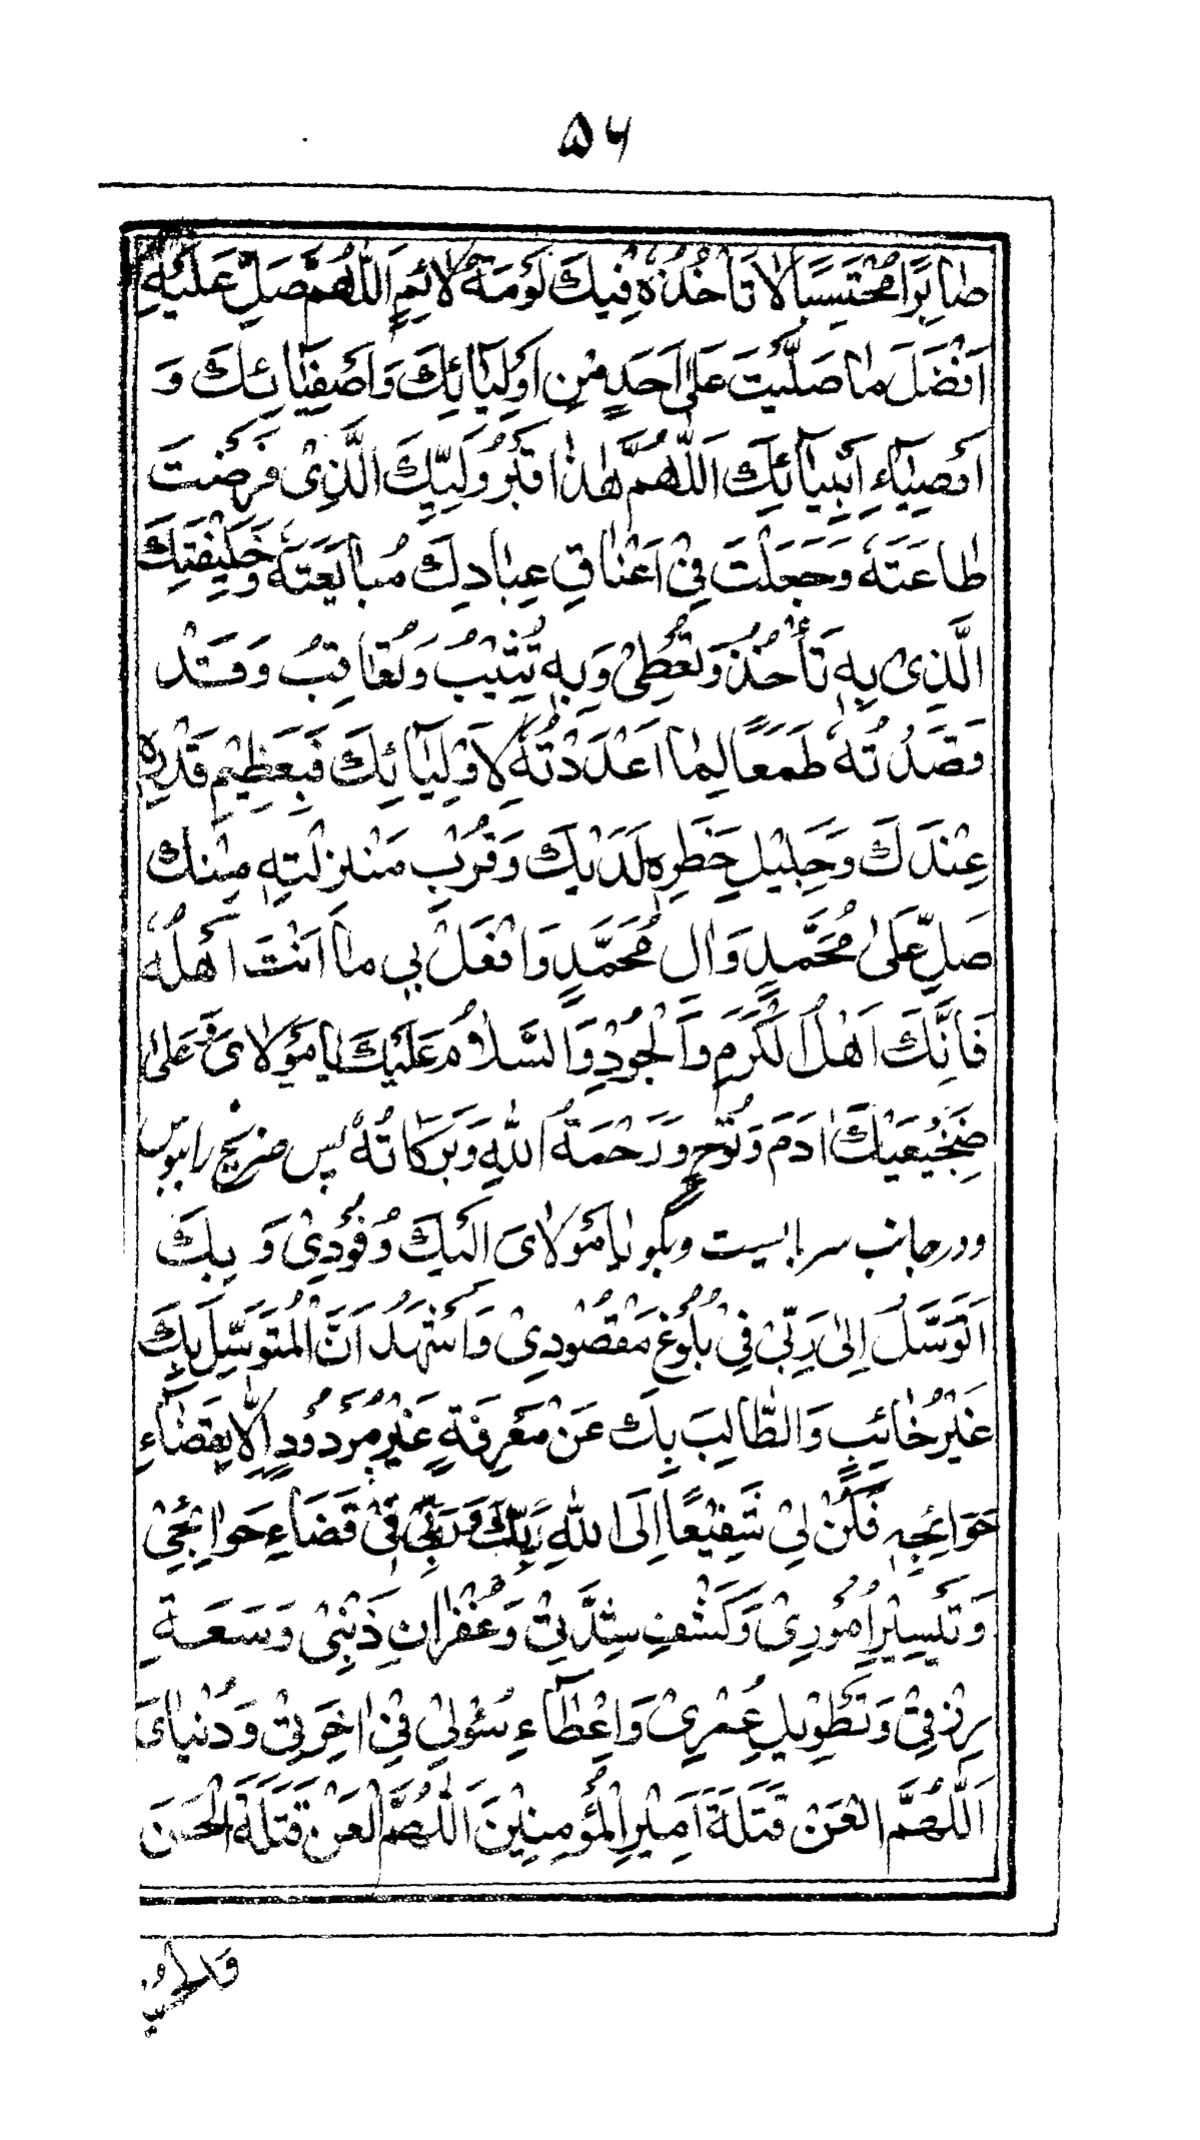 ۵۶
صَابِرًا مُحْتَسِبًا لَا تَأْخُذُهُ فِيكَ لَوْمَةُ لَائِمٍ اَللّٰهُمَّ صَلِّ عَلَيْهِ
اَفْضَلَ مَا صَلَّيْتَ عَلٰى اَحَدٍ مِنْ اَوْلِيَائِكَ وَاَصْفِيَائِكَ وَ
اَوْصِيَاءِ اَنْبِيَائِكَ اَللّٰهُمَّ هٰذَا قَبْرُ وَلِيِّكَ الَّذِى فَرَضْتَ
طَاعَتَهُ وَجَعَلْتَ فِى اَعْنَاقِ عِبَادِكَ مُبَايَعَتَهُ وَخَلِيْفَتِكَ
الَّذِى بِهِ تَأْخُذُ وَتُعْطِى وَبِهِ تُثِيْبُ وَتُعَاقِبُ وَقَدْ
قَصَدْتُهُ طَمَعًا لِمَا اَعْدَدْتَهُ لِاَوْلِيَائِكَ فَبِعَظِيْمِ قَدْرِهِ
عِنْدَكَ وَجَلِيْلِ خَطَرِهِ لَدَيْكَ وَقُرْبِ مَنْزِلَتِهِ مِنْكَ
صَلِّ عَلٰى مُحَمَّدٍ وَاٰلِ مُحَمَّدٍ وَافْعَلْ بِى مَا اَنْتَ اَهْلُهُ
فَاِنَّكَ اَهْلُ الْكَرَمِ وَالْجُوْدِ وَالسَّلَامُ عَلَيْكَ يَا مَوْلَاىَ وَعَلٰى
ضَجِيْعَيْكَ اٰدَمَ وَنُوْحٍ وَرَحْمَةُ اللهِ وَبَرَكَاتُهُ پس ضريح را ببوس
ودر جانب سر بايست وبگو يَا مَوْلَاىَ اِلَيْكَ وُفُوْدِىْ وَبِكَ
اَتَوَسَّلُ اِلٰى رَبِّىْ فِىْ بُلُوْغِ مَقْصُوْدِىْ وَاَشْهَدُ اَنَّ الْمُتَوَسِّلَ بِكَ
غَيْرُ خَائِبٍ وَالطَّالِبَ بِكَ عَنْ مَعْرِفَةٍ غَيْرُ مَرْدُوْدٍ اِلَّا بِقَضَاءِ
حَوَائِجِهِ فَكُنْ لِىْ شَفِيْعًا اِلَى اللهِ رَبِّكَ وَرَبِّىْ فِىْ قَضَاءِ حَوَائِجِىْ
وَتَيْسِيْرِ اُمُوْرِىْ وَكَشْفِ شِدَّتِىْ وَغُفْرَانِ ذَنْبِىْ وَسَعَةِ
رِزْقِىْ وَتَطْوِيْلِ عُمْرِىْ وَاِعْطَاءِ سُؤْلِىْ فِىْ اٰخِرَتِىْ وَدُنْيَاىَ
اَللّٰهُمَّ الْعَنْ قَتَلَةَ اَمِيْرِ الْمُؤْمِنِيْنَ اَللّٰهُمَّ الْعَنْ قَتَلَةَ الْحَسَنِ